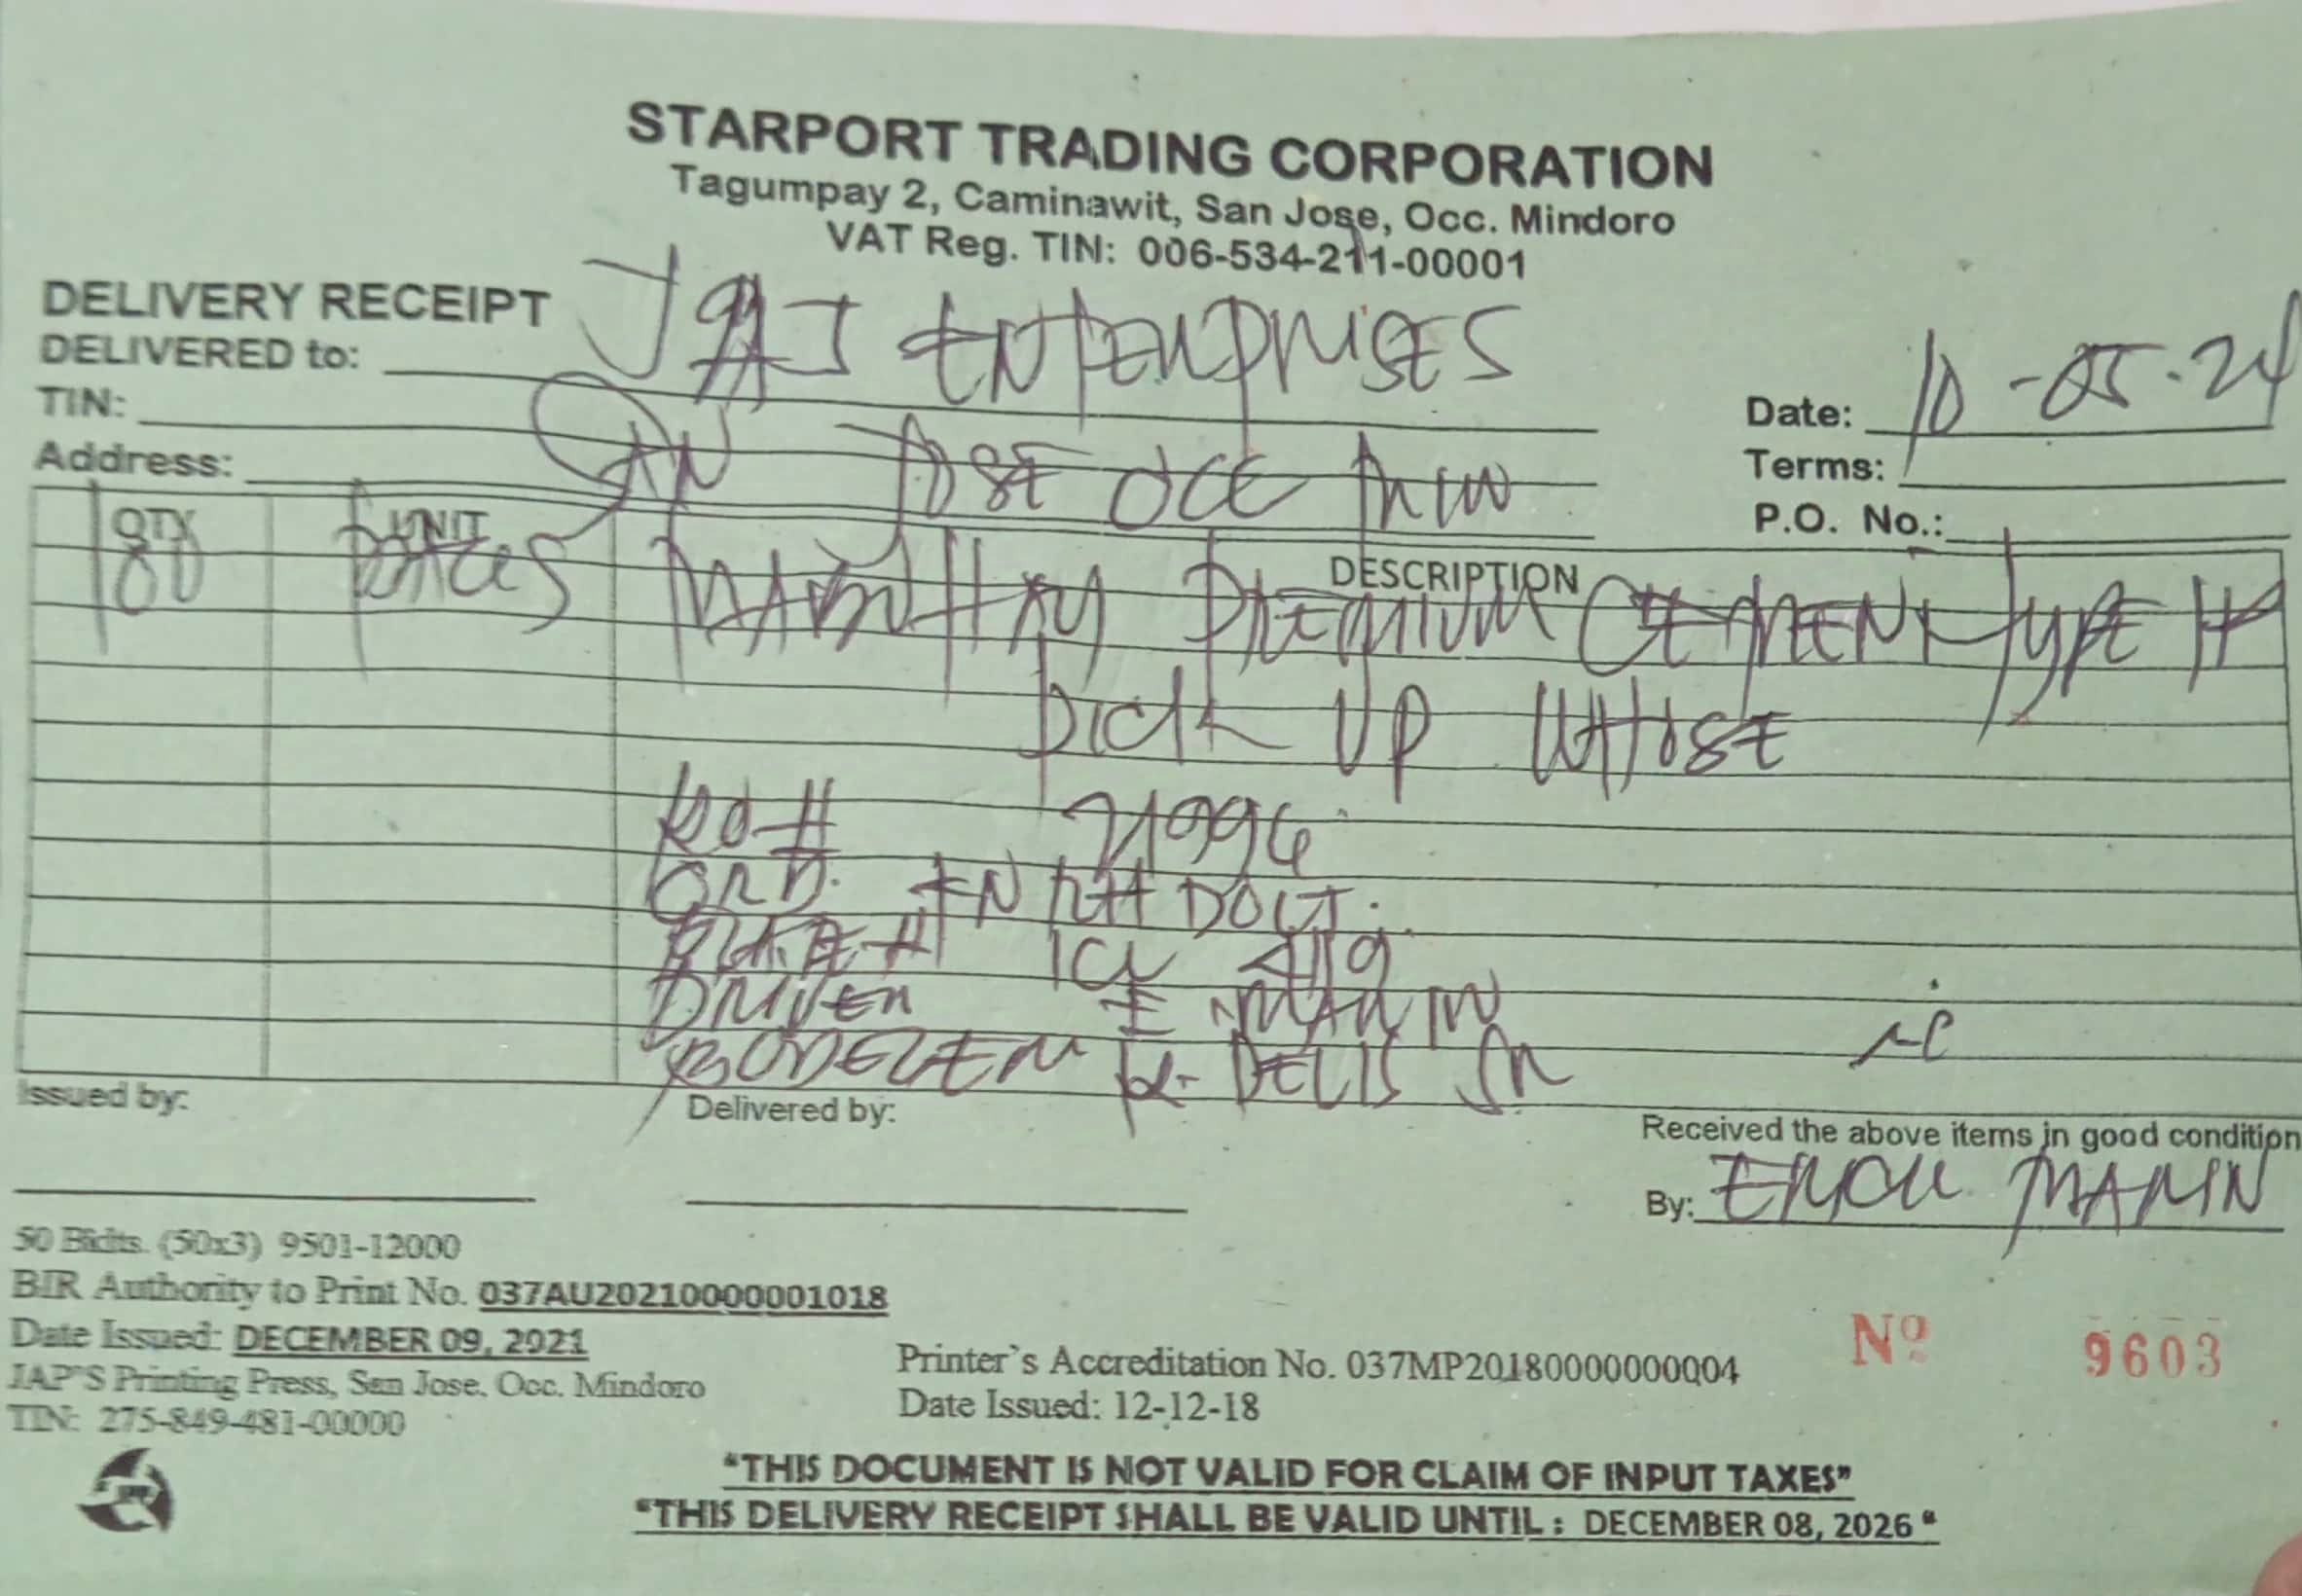 STARPORT TRADING CORPORATION
Tagumpay 2, Caminawit, San Jose, Occ. Mindoro
VAT Reg. TIN: 006-534-211-00001
DELIVERY RECEIPT
DELIVERED to: ENTERPRISES
TIN:
Address: SAN JOSE OCC MIN
Date: 10-05-24
Terms:
P.O. No.:
QTY UNIT DESCRIPTION
PREMIUM CEMENT TYPE
PICK UP WHOSE
21996
PLATE #
DRIVER E MARIN
BODEGER DELIS SR
Issued by:
Delivered by:
Received the above items in good condition
By: MARIN
50 Bklts. (50x3) 9501-12000
BIR Authority to Print No. 037AU20210000001018
Date Issued: DECEMBER 09, 2021
JAP'S Printing Press, San Jose, Occ. Mindoro
TIN: 275-849-481-00000
Printer's Accreditation No. 037MP20180000000004
Date Issued: 12-12-18
Nº 9603
"THIS DOCUMENT IS NOT VALID FOR CLAIM OF INPUT TAXES"
"THIS DELIVERY RECEIPT SHALL BE VALID UNTIL : DECEMBER 08, 2026"